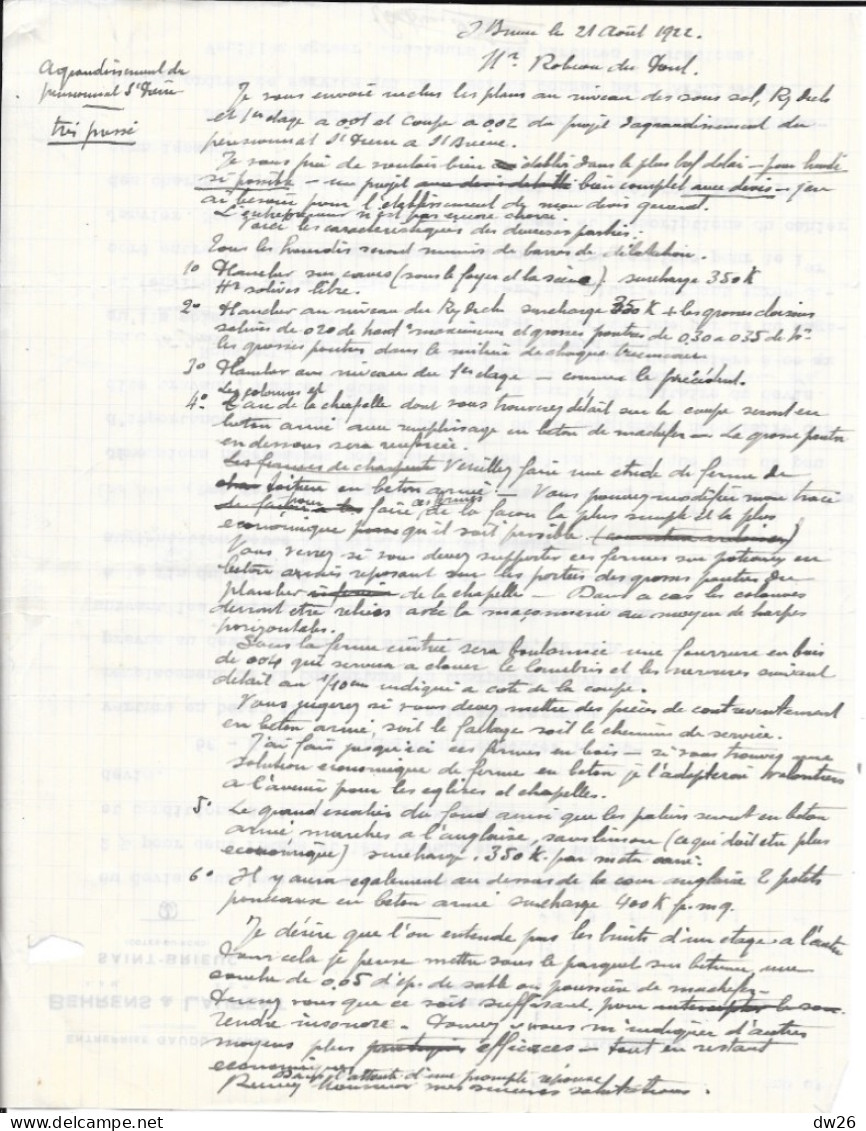 St Brieuc le 21 Août 1922.
Mr
Agrandissement du
pensionnat St Pierre
très pressé
Je vous envoie inclus les plans au niveau des sous sol, Rz de ch
et 1er etage a 0.01 et Coupe a 0.02 du projet d'agrandissement du
pensionnat St Pierre a St Brieuc.
Je vous prie de vouloir bien etablir dans le plus bref delai
si possible un projet bien complet avec devis j'en
ai besoin pour l'etablissement de mon devis general.
L'entrepreneur n'est pas encore choisi.
Voici les caracteristiques des diverses parties.
Tous les seront munis de barres de dilatation.
1o Plancher sur caves (sous le foyer et la scène) surcharge 350 K
Hr solives libre.
2o Plancher au niveau du Rz de ch surcharge 350 K + les grosses cloisons
solives de 0.20 de haut maximum et grosses poutres de 0.30 a 0.35 de hr
les grosses poutres dans le milieu de chaque trumeau.
3o Plancher au niveau du 1er etage comme le précédent.
Les colonnes et
4o l'arc de la chapelle dont vous trouverez détail sur la coupe seront en
beton armé avec remplissage en beton de machefer La grosse poutre
en dessous sera renforcée.
Les fermes de charpente Veuillez faire une etude de ferme de
toiture en beton armé Vous pourrez modifier mon tracé
pour faire ces fermes de la façon la plus simple et la plus
economique qu'il soit possible
Vous verrez si vous devez supporter ces fermes sur poteaux en
beton armé reposant sur les portées des grosses poutres du
plancher de la chapelle Dans ce cas les colonnes
devront etre reliées avec la maçonnerie au moyen de harpes
horizontales.
Sous la ferme cintrée sera boulonnée une fourrure en bois
de 0.04 qui servira a clouer le lambris et les nervures suivant
detail au 1/10me indiqué a coté de la coupe.
Vous jugerez si vous devez mettre des pièces de contreventement
en beton armé soit le faîtage soit le chemin de service.
J'ai fait jusqu'ici ces fermes en bois si vous trouvez une
solution economique de ferme en beton je l'adopterai volontiers
a l'avenir pour les eglises et chapelles.
5o Le grand escalier du fond ainsi que les paliers seront en beton
armé marches a l'anglaise, sans limon (ce qui doit etre plus
economique) surcharge 350 K. par mètre carré.
6o Il y aura egalement au dessus de la cour anglaise 2 petits
ponceaux en beton armé surcharge 400 K p. mq.
Je désire que l'on entende pas les bruits d'un etage a l'autre
Pour cela je pense mettre sous le parquet sur bitume une
couche de 0.05 d'ép. de sable ou poussière de machefer
Pensez vous que ce soit suffisant, pour intercepter le son
rendre insonore. Pouvez vous m'indiquer d'autres
moyens plus pratiques efficaces tout en restant
economiques
Dans l'attente d'une prompte réponse
Recevez Monsieur mes sincères salutations.
SAINT-BRIEUC
dw26